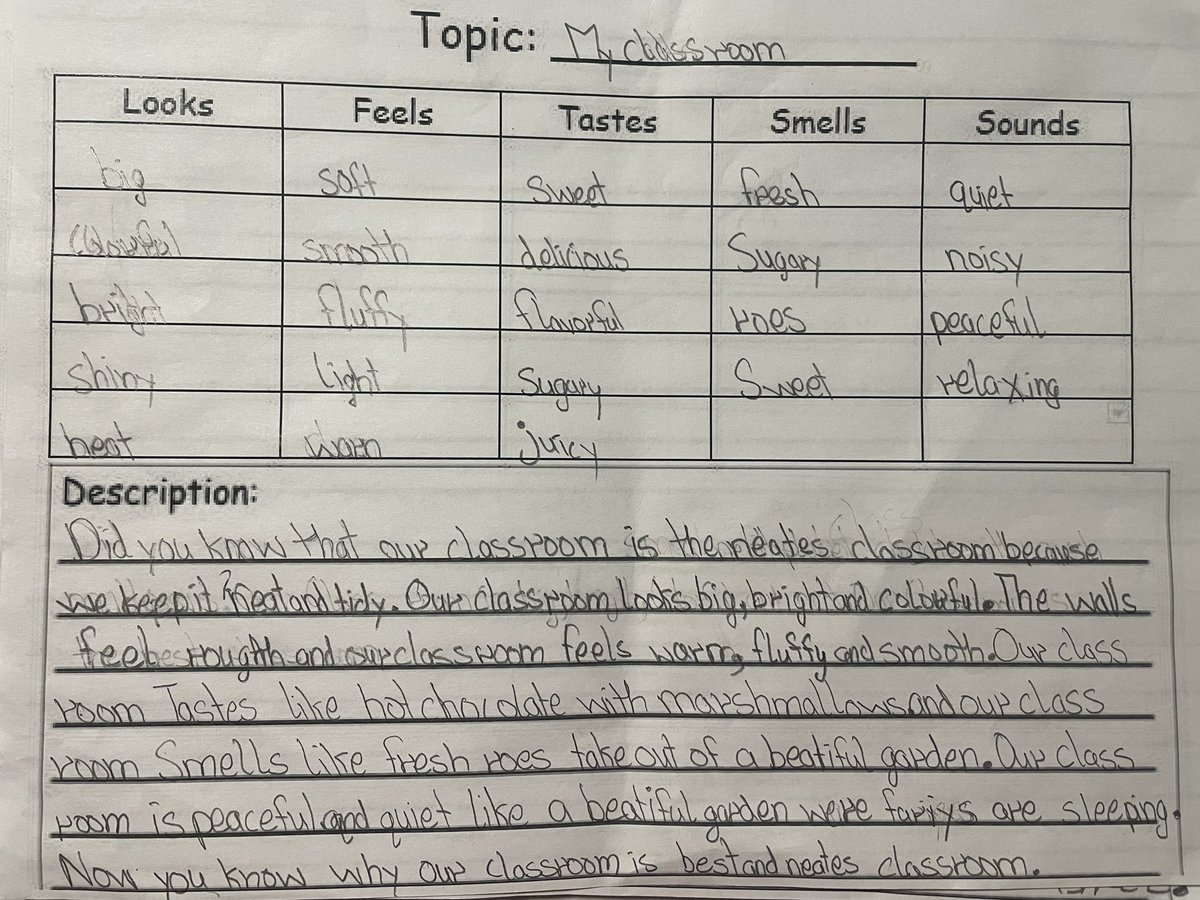 Topic: My classroom
Looks Feels Tastes Smells Sounds
big soft sweet fresh quiet
colourful smooth delicious Sugary noisy
bright fluffy flavorful roes peaceful
shiny light Sugary Sweet relaxing
neat warm juicy
Description:
Did you know that our classroom is the neates classroom because
we keep it neat and tidy. Our classroom looks big, bright and colourful. The walls
feel and our classroom feels warm, fluffy and smooth. Our class
room Tastes like hot chocolate with marshmallows and our class
room Smells like fresh roes take out of a beatiful garden. Our class
room is peaceful and quiet like a beatiful garden were fariys are sleeping.
Now you know why our classroom is best and neates classroom.